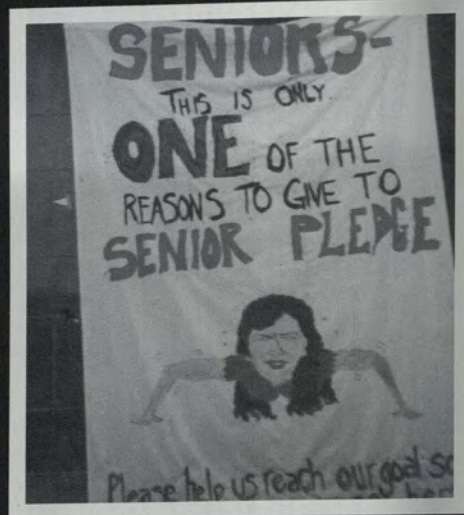 SENIORS-
THIS IS ONLY
ONE OF THE
REASONS TO GIVE TO
SENIOR PLEDGE
Please help us reach our goal so